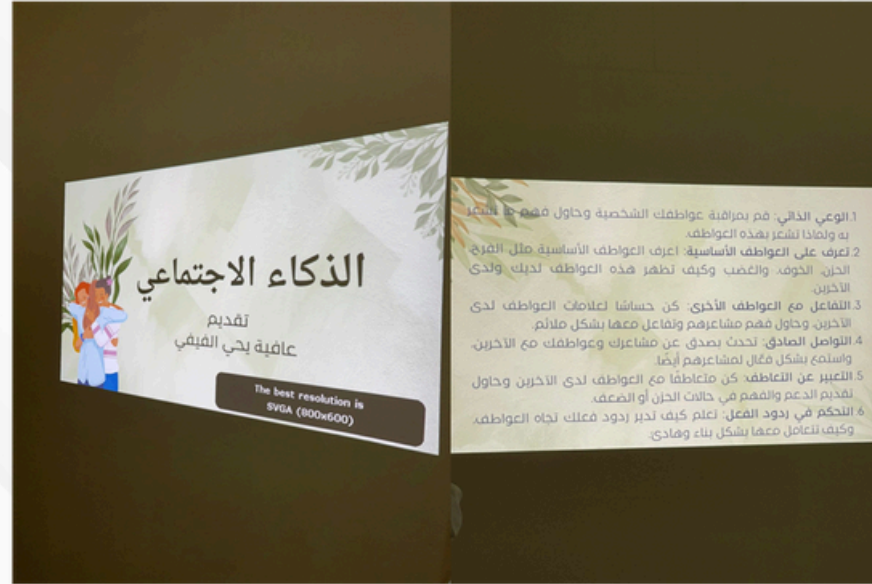 الذكاء الاجتماعي
تقديم
عافية يحي الفيفي
The best resolution is
SVGA (800x600)
1.الوعي الذاتي: قم بمراقبة عواطفك الشخصية وحاول فهم ما تشعر
به ولماذا تشعر بهذه العواطف.
2.تعرف على العواطف الأساسية: اعرف العواطف الأساسية مثل الفرح،
الحزن، الخوف، والغضب وكيف تظهر هذه العواطف لديك ولدى
الآخرين.
3.التفاعل مع العواطف الأخرى: كن حساسًا لعلامات العواطف لدى
الآخرين، وحاول فهم مشاعرهم وتفاعل معها بشكل ملائم.
4.التواصل الصادق: تحدث بصدق عن مشاعرك وعواطفك مع الآخرين،
واستمع بشكل فعّال لمشاعرهم أيضًا.
5.التعبير عن التعاطف: كن متعاطفًا مع العواطف لدى الآخرين وحاول
تقديم الدعم والفهم في حالات الحزن أو الضعف.
6.التحكم في ردود الفعل: تعلم كيف تدير ردود فعلك تجاه العواطف،
وكيف تتعامل معها بشكل بناء وهادئ.